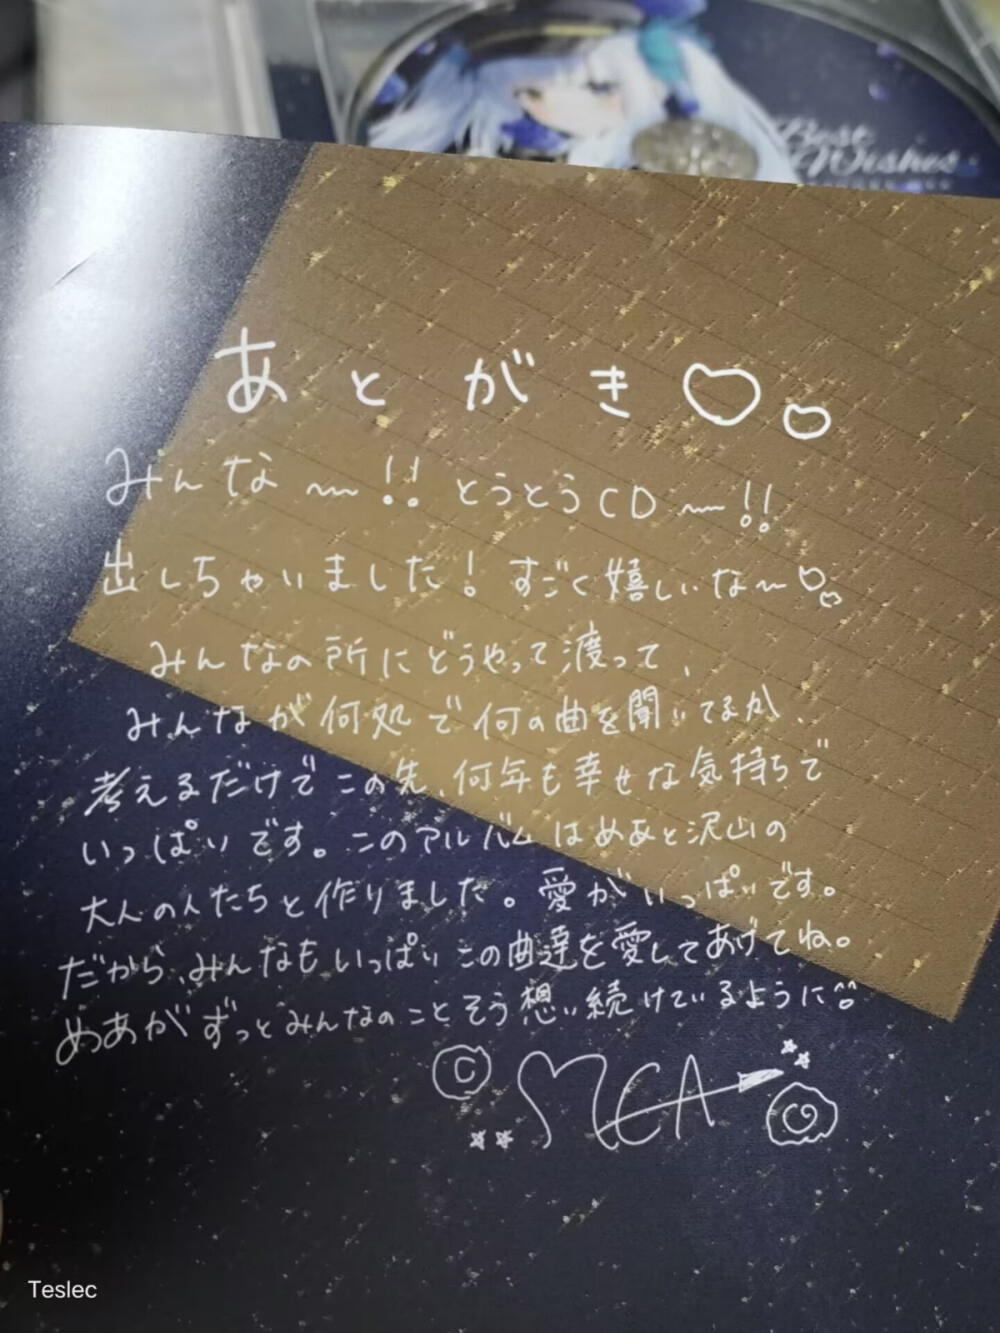 Best
Wishes
あとがき♡♡
みんな〜!! とうとうCD〜!!
出しちゃいました! すごく嬉しいな〜♡♡
みんなの所にどうやって渡って、
みんなが何処で何の曲を聞いてるか
考えるだけでこの先、何年も幸せな気持ちで
いっぱいです。このアルバムはめあと沢山の
大人の人たちと作りました。愛がいっぱいです。
だから、みんなもいっぱいこの曲達を愛してあげてね。
めあがずっとみんなのことそう想い続けているように♡♡
MEA
Teslec